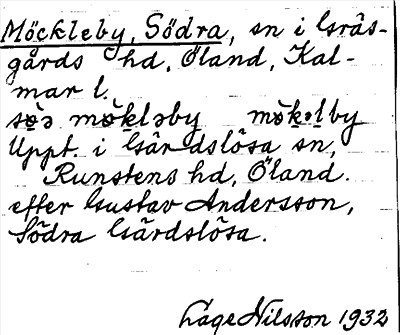 Möckleby, Södra, sn i Gräs-
gårds hd, Öland, Kal-
mar l.
mökləby
Uppt. i Gärdslösa sn,
Runstens hd, Öland.
efter Gustav Andersson,
Södra Gärdslösa.
Låge Nilsson 1932